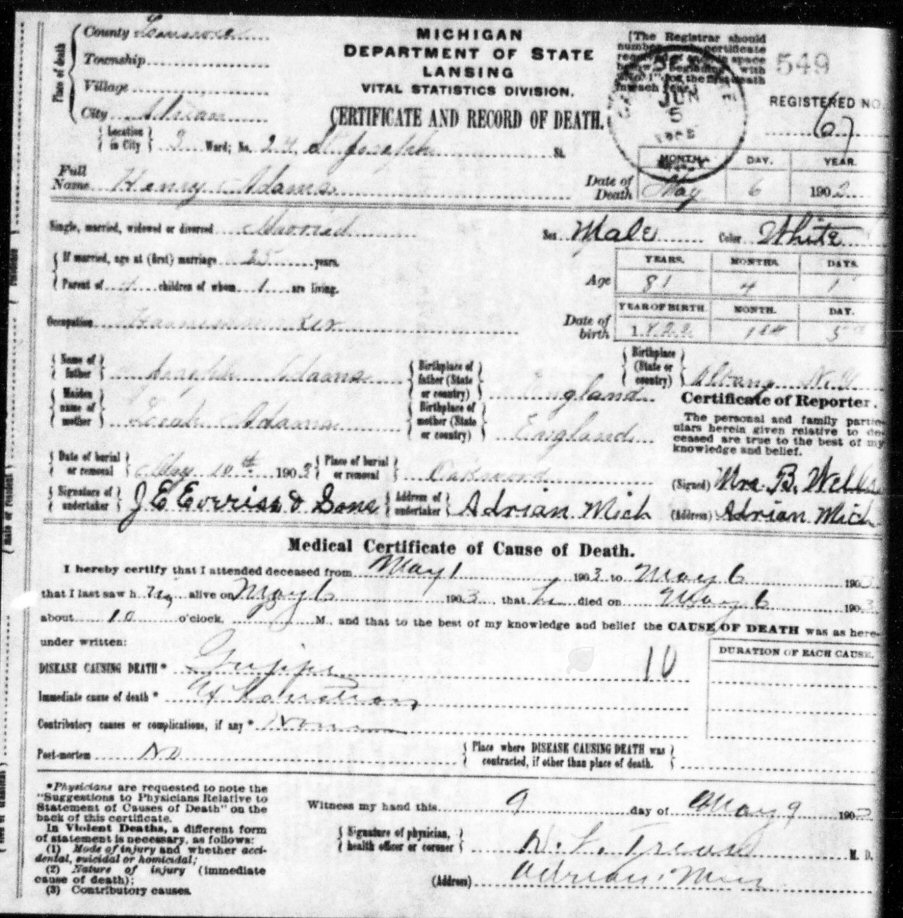 MICHIGAN
DEPARTMENT OF STATE
LANSING
VITAL STATISTICS DIVISION.
CERTIFICATE AND RECORD OF DEATH.
Place of death
County
Township
Village
City Adrian
Location in City 2 Ward; No. 24 St Joseph St.
[The Registrar should number each certificate
549
JUN
5
REGISTERED NO.
67
Full Name Henry Adams
Date of Death
MONTH. DAY. YEAR.
May 6 1902
Single, married, widowed or divorced Married
Sex Male Color White
If married, age at (first) marriage 25 years.
Parent of 4 children of whom 1 are living.
Age
YEARS. MONTHS. DAYS.
81 4 1
Occupation Harnessmaker
Date of birth
YEAR OF BIRTH. MONTH. DAY.
Name of father Joseph Adams
Birthplace of father (State or country) England
Birthplace (State or country) Albany N.Y
Maiden name of mother Leah Adams
Birthplace of mother (State or country) England
Certificate of Reporter.
The personal and family partic-
ulars herein given relative to de-
ceased are true to the best of my
knowledge and belief.
Date of burial or removal May 10th 1903
Place of burial or removal Oakwood
(Signed) Mrs. B. Wells
Signature of undertaker J E Everiss & Sons
Address of undertaker Adrian Mich
(Address) Adrian Mich
Medical Certificate of Cause of Death.
I hereby certify that I attended deceased from May 1 1903 to May 6 190
that I last saw him alive on May 6 1903 that he died on May 6 1903
about 10 o'clock, M., and that to the best of my knowledge and belief the CAUSE OF DEATH was as here-
under written:
DURATION OF EACH CAUSE.
DISEASE CAUSING DEATH* Grippe 10
Immediate cause of death* Exhaustion
Contributory causes or complications, if any* None
Post-mortem No
Place where DISEASE CAUSING DEATH was contracted, if other than place of death.
*Physicians are requested to note the
"Suggestions to Physicians Relative to
Statement of Causes of Death" on the
back of this certificate.
In Violent Deaths, a different form
of statement is necessary, as follows:
(1) Mode of injury and whether acci-
dental, suicidal or homicidal;
(2) Nature of injury (immediate
cause of death);
(3) Contributory causes.
Witness my hand this 9 day of May 9 190
Signature of physician, health officer or coroner M. D.
(Address) Adrian Mich